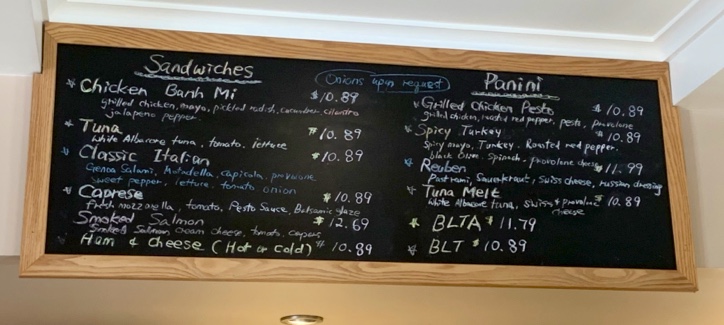 Sandwiches
Onions upon request
Chicken Banh Mi $10.89
grilled chicken, mayo, pickled radish, cucumber, cilantro
jalapeno pepper
Tuna $10.89
White Albacore tuna, tomato, lettuce
Classic Italian $10.89
Genoa Salami, Mortadella, capicola, provolone
sweet pepper, lettuce, tomato onion
Caprese $10.89
fresh mozzarella, tomato, Pesto Sauce, Balsamic glaze
Smoked Salmon $12.69
Smoked Salmon, cream cheese, tomato, capers
Ham & cheese (Hot or Cold) $10.89
Panini
Grilled Chicken Pesto $10.89
grilled chicken, roasted red pepper, pesto, provolone
Spicy Turkey $10.89
Spicy mayo, Turkey, Roasted red pepper,
black Olive, Spinach, provolone cheese
Reuben $11.99
Pastrami, Sauerkraut, Swiss cheese, russian dressing
Tuna Melt $10.89
White Albacore tuna, swiss & provolone
cheese
BLTA $11.79
BLT $10.89